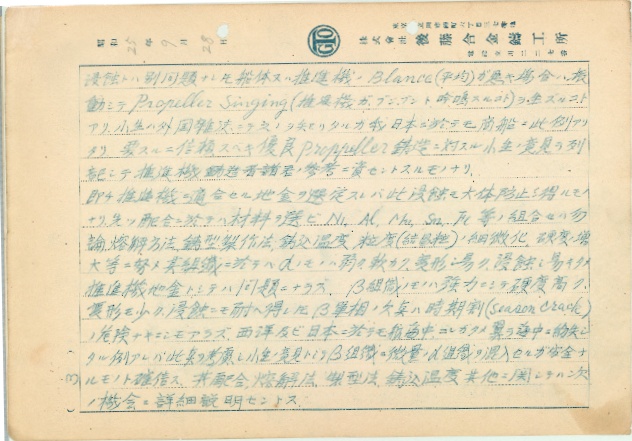 昭和25年9月28日
株式会社 後藤合金鋳工所
浸蝕トハ別問題ナレ共船体スハ推進機ノBlance(平均)ガ悪キ場合ハ振
動シテPropeller Singing(推進機ガブンブント吟鳴スルコト)ヲ生ズルコト
アリ、小生ハ外国雑誌ニテ之ヲ知リタルガ我日本ニ於テモ商船ニ此例アリ
タリ 要スルニ信頼スベキ優良Proppeller鋳造ニ対スル小生ノ意見ヲ列
記シテ推進機鋳造者諸君ノ参考ニ資セントスルモノナリ
即チ推進機ニ適合セル地金ヲ選定スレバ此浸蝕モ大体防止シ得ルモノ
ナリ、先ヅ配合ニ於テハ材料ヲ選ビNi, Al, Mn, Sn, Fe等ノ組合セハ勿
論、熔解方法、鋳型製作法、鋳込温度、粒度(結晶粒)ノ細微化、硬度ノ増
大等ニ努メ其組織ニ於テハαノモノハ弱ク軟カク、変形シ易ク、浸蝕シ易キタメ
推進機地金トシテハ問題ニナラズ、β組織ノモノハ強力ニシテ硬度高ク、
変形モ少ク、浸蝕ニモ耐ヘ得レ共β単相ノ欠点ハ時期割(season crack)
ノ危険ナキニシモアラズ 西洋及ビ日本ニ於テモ航海中
タル例アレバ此点ヲ考慮シ小生ノ意見トシテβ組織ニ微量ノα組織ヲ混入セルガ安全ナ
ルモノト確信ス、其配合、熔解法、型法、鋳込温度其他ニ関シテハ次
ノ機会ニ詳細説明セントス
(3)